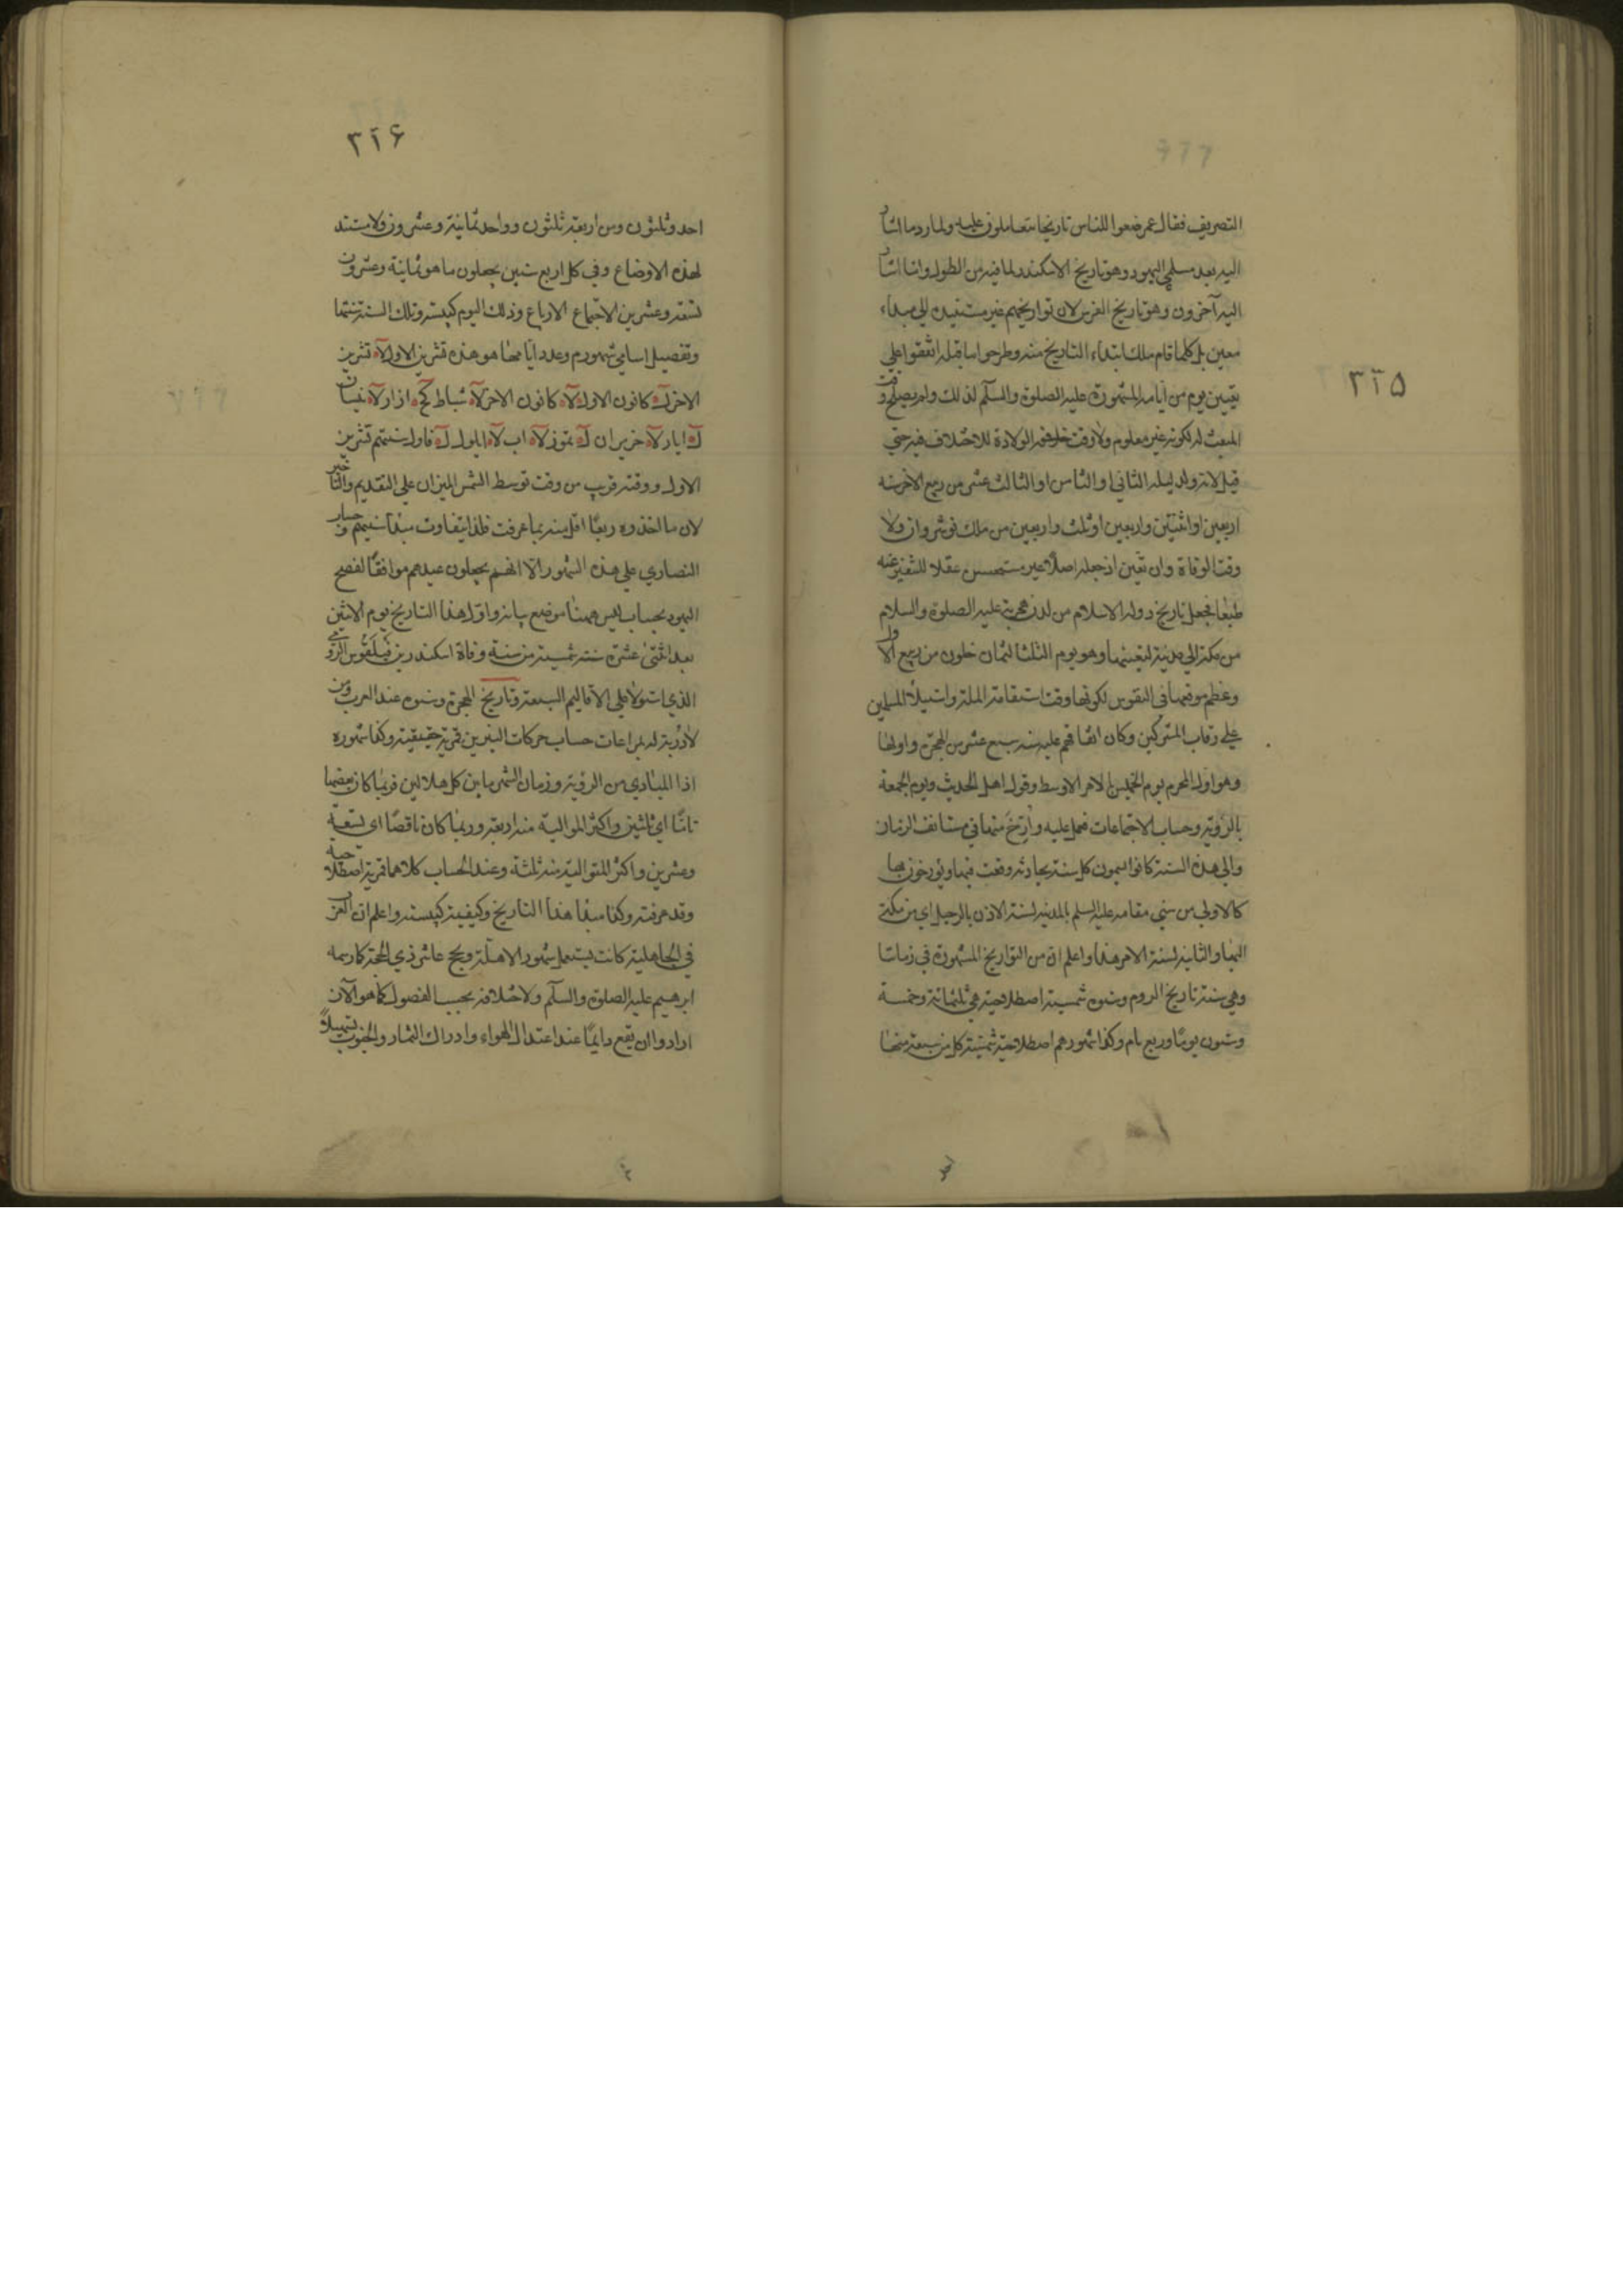 ٣٢٥
التصريف فقال عمر ضعوا للناس تاريخا يتعاملون عليه ولما رد ما اشار
اليه بعد مسلمي اليهود وهو تاريخ الاسكندر لما فيه من الطول وانا اشار
اليه آخرون وهو تاريخ الفرس لان تواريخهم غير مستنيدة الى مبداء
معين بل كلما قام ملك ابتداء التاريخ منه وطرحوا ما قبله اتفقوا على
تعيين يوم من ايامه المشهورة عليه الصلوة والسلم لذلك ولم يصلح وقت
المبعث له لكونه غير معلوم ولا وقت الولادة للاختلاف فيه حتى
قيل لانه ولد ليلة الثاني او الثامن او الثالث عشر من ربيع الآخر سنة
اربعين او اثنتين واربعين او ثلث واربعين من ملك نوشروان ولا
وقت الوفاة وان تعين اذ جعله اصلا غير مستحسن عقلا للتنفر عنه
طبعا فجعل تاريخ دولة الاسلام من لدن هجرته عليه الصلوة والسلام
من مكة الى مدينة لتعينها وهو يوم الثلثا لثمان خلون من ربيع الاول
وعظم موقعها في النفوس لكونها وقت استقامة الملة واستيلاء المسلمين
على رقاب المشركين وكان اتفاقهم عليه سنة سبع عشر من الهجرة واولها
وهو اول المحرم يوم الخميس الامر الاوسط وقول اهل الحديث ويوم الجمعة
بالرؤية وحساب الاجتماعات فعمل عليه وارخ منها في مستانف الزمان
والى هذه السنة كانوا يسمون كل سنة بحادثة وقعت فيها ويورخون بها
كالاولى من سني مقامه عليه السلم بالمدينة لسنة الاذن بالرحيل اي من مكة
اليها والثانية لسنة الامر هذا واعلم ان من التواريخ المشهورة في زماننا
وهي ستة تاريخ الروم وسنوه شمسية اصطلاحية هي ثلثمائة وخمسة
وستون يوما وربع تام وكذا شهورهم اصطلاحية شمسية كل من سبعة منها
٣٢۶
احد وثلثون ومن اربعة ثلثون وواحد ثمانية وعشرون ولا مستند
لهذه الاوضاع وفي كل اربع سنين يجعلون ما هو ثمانية وعشرون
تسعة وعشرين لاجتماع الارباع وذلك اليوم كبيسة وتلك السنة سنتها
وتفصيل اسامي شهورهم وعدد ايامها هو هذه تشرين الاول لآ تشرين
الاخر ل كانون الاول لآ كانون الاخر لآ شباط كح اذار لآ نيسان
ل ايار لآ حزيران ل تموز لآ اب لآ ايلول ل فاول سنتهم تشرين
الاول ووقته قريب من وقت توسط الشمس الميزان على التقديم والتاخير
لان ما اخذوه ربعا اقل منه بما عرفت فلذا يتفاوت مبدأ سنيهم وحساب
النصارى على هذه الشهور الا انهم يجعلون عيدهم موافقا لفصح
اليهود بحساب ليس ههنا موضع بيانه واول هذا التاريخ يوم الاثنين
بعد اثنتى عشرة سنة شمسية من سنة وفاة اسكندر بن فيلقوس الرومي
الذي استولا على الاقاليم السبعة وتاريخ الهجرة وسنوه عند العرب ومن
لا دربة له بمراعات حساب حركات النيرين قمرية حقيقية وكذا شهوره
اذا المبادي من الرؤية وزمان الشهر ما بين كل هلالين فربما كان بعضها
تاما اي ثلثين واكثر الموالية منه اربعة وربما كان ناقصا اي تسعة
وعشرين واكثر المتوالية منه ثلثة وعند الحساب كلاهما قمرية اصطلاحية
وقد عرفته وكذا مبدا هذا التاريخ وكيفية كبيسته واعلم ان العرب
في الجاهلية كانت يستعمل شهور الاهلة ويحج عاشر ذي الحجة كما رسمه
ابرهيم عليه الصلوة والسلم ولاختلافه بحسب الفصول كما هو الآن
ارادوا ان يقع دايما عند اعتدال الهواء وادراك الثمار والحبوب تسهيلا